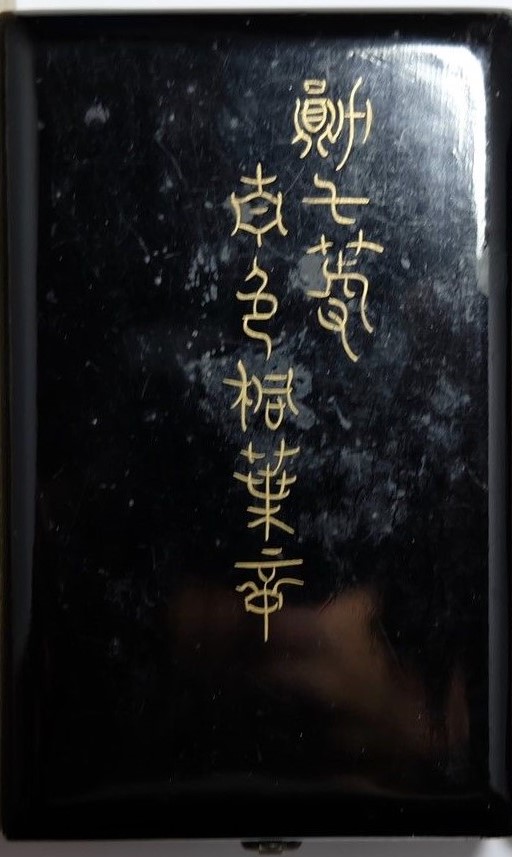 勲七等
青色桐葉章